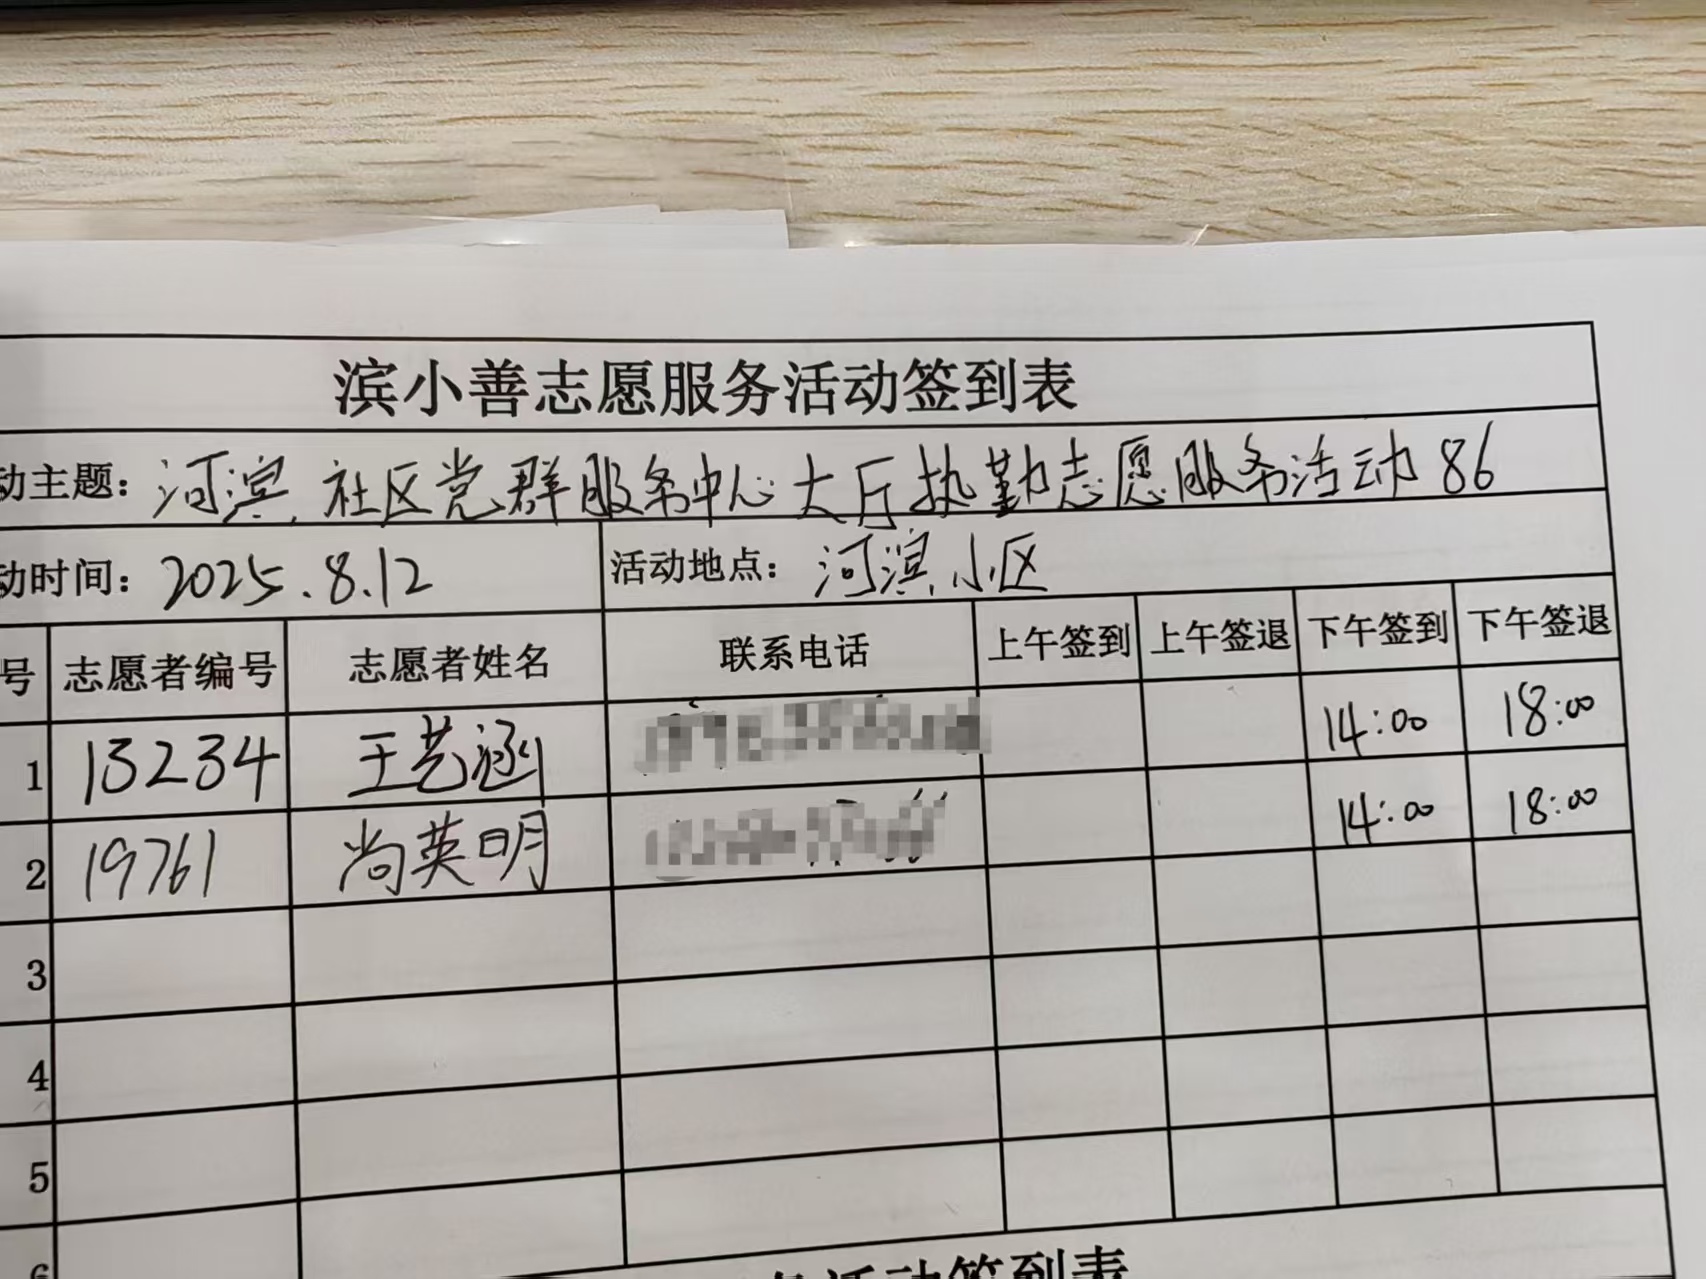 滨小善志愿服务活动签到表
动主题：河滨社区党群服务中心大厅执勤志愿服务活动86
动时间：2025.8.12 活动地点：河滨小区
号 志愿者编号 志愿者姓名 联系电话 上午签到 上午签退 下午签到 下午签退
1 13234 王艺涵 14:00 18:00
2 19761 尚英明 14:00 18:00
3
4
5
6
活动签到表